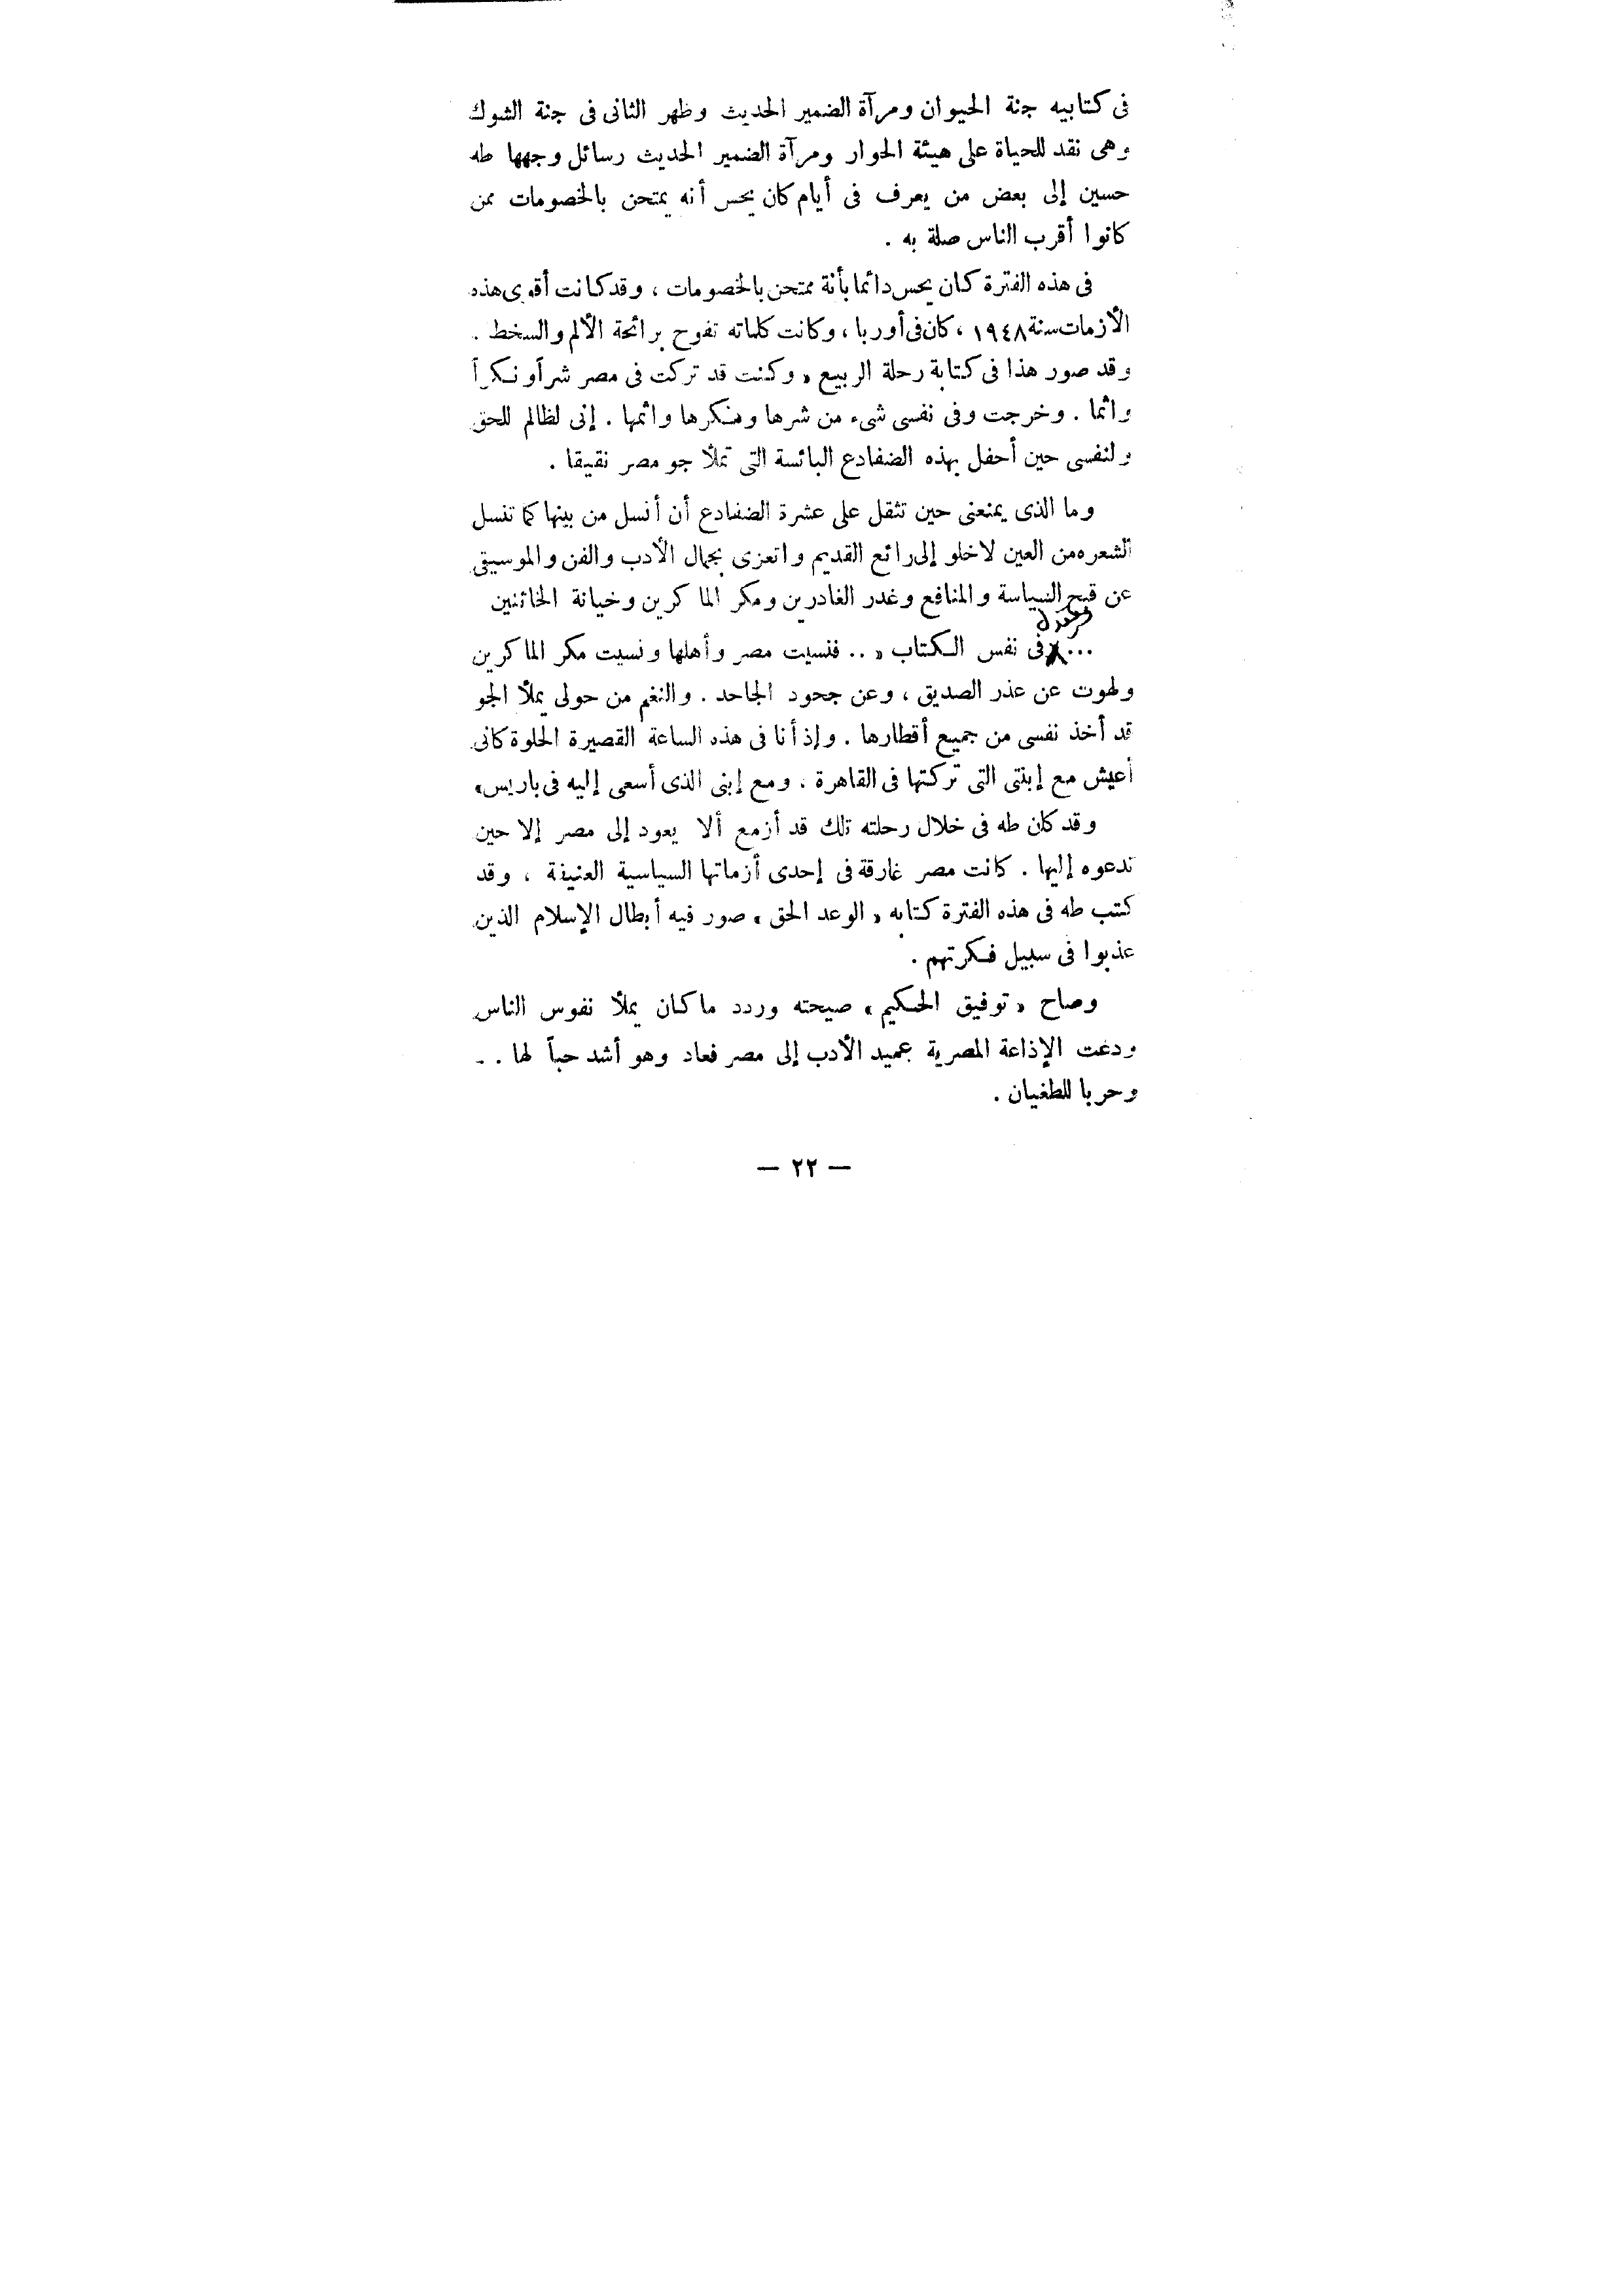 فى كتابيه جنة الحيوان ومرآة الضمير الحديث وظهر الثانى فى جنة الشوك
وهى نقد للحياة على هيئة الحوار ومرآة الضمير الحديث رسائل وجهها طه
حسين إلى بعض من يعرف فى أيام كان يحس أنه يمتحن بالخصومات ممن
كانوا أقرب الناس صلة به .
فى هذه الفترة كان يحس دائما بأنة ممتحن بالخصومات ، وقد كانت أقوى هذه
الأزمات سنة ١٩٤٨ ، كان فى أوربا ، وكانت كلماته تفوح برائحة الألم والسخط .
وقد صور هذا فى كتابة رحلة الربيع « وكنت قد تركت فى مصر شرأو نكراً
واثما . وخرجت وفى نفسى شىء من شرها ومنكرها واثمها . إنى لظالم للحق
ولنفسى حين أحفل بهذه الضفادع البائسة التى تملأ جو مصر نقيقا .
وما الذى يمنعنى حين تثقل على عشرة الضفادع أن أنسل من بينها كما تنسل
الشعره من العين لاخلو إلى رائع القديم واتعزى بجمال الأدب والفن والموسيقى
عن قبح السياسة والمنافع وغدر الغادرين ومكر الماكرين وخيانة الخائنين
... فى نفس الكتاب « .. فنسيت مصر وأهلها ونسيت مكر الماكرين
ولهوت عن عذر الصديق ، وعن جحود الجاحد . والنغم من حولى يملأ الجو
قد أخذ نفسى من جميع أقطارها . وإذ أنا فى هذه الساعة القصيرة الحلوة كانى
أعيش مع إبنتى التى تركتها فى القاهرة . ومع إبنى الذى أسعى إليه فى باريس»
وقد كان طه فى خلال رحلته تلك قد أزمع ألا يعود إلى مصر إلا حين
تدعوه إليها . كانت مصر غارقة فى إحدى أزماتها السياسية العنيفة ، وقد
كتب طه فى هذه الفترة كتابه « الوعد الحق » صور فيه أبطال الإسلام الذين
عذبوا فى سبيل فكرتهم .
وصاح « توفيق الحكيم » صيحته وردد ما كان يملأ نفوس الناس
ودعت الإذاعة المصرية عميد الأدب إلى مصر فعاد وهو أشد حباً لها . .
وحربا للطغيان .
— ٢٢ —